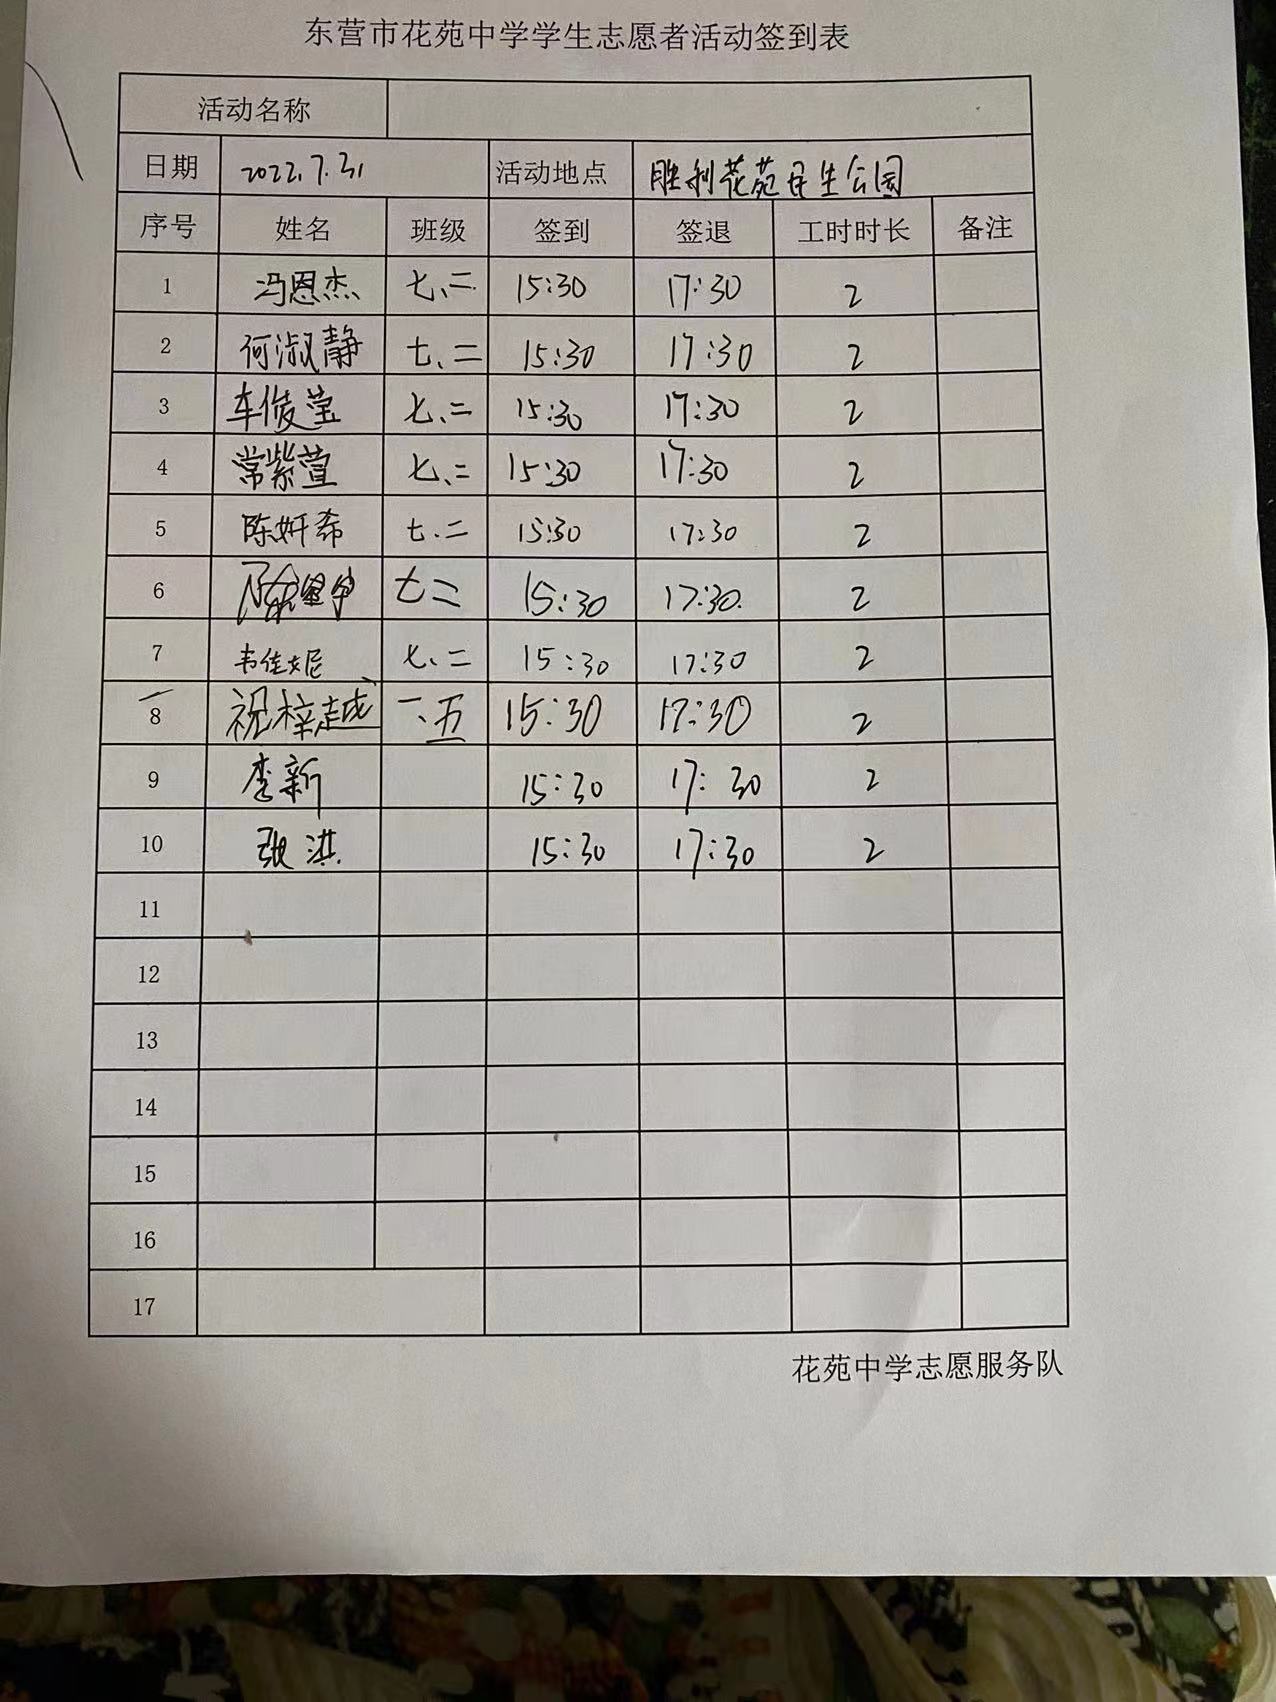 东营市花苑中学学生志愿者活动签到表
活动名称
日期 2022.7.31 活动地点 胜利花苑民生公园
序号 姓名 班级 签到 签退 工时时长 备注
1 冯恩杰 七、二 15:30 17:30 2
2 何淑静 七、二 15:30 17:30 2
3 车俊莹 七、二 15:30 17:30 2
4 常紫萱 七、二 15:30 17:30 2
5 陈妍希 七、二 15:30 17:30 2
6 七二 15:30 17:30 2
7 韦佳妮 七、二 15:30 17:30 2
8 祝梓越 一、五 15:30 17:30 2
9 李新 15:30 17:30 2
10 张洪 15:30 17:30 2
11
12
13
14
15
16
17
花苑中学志愿服务队